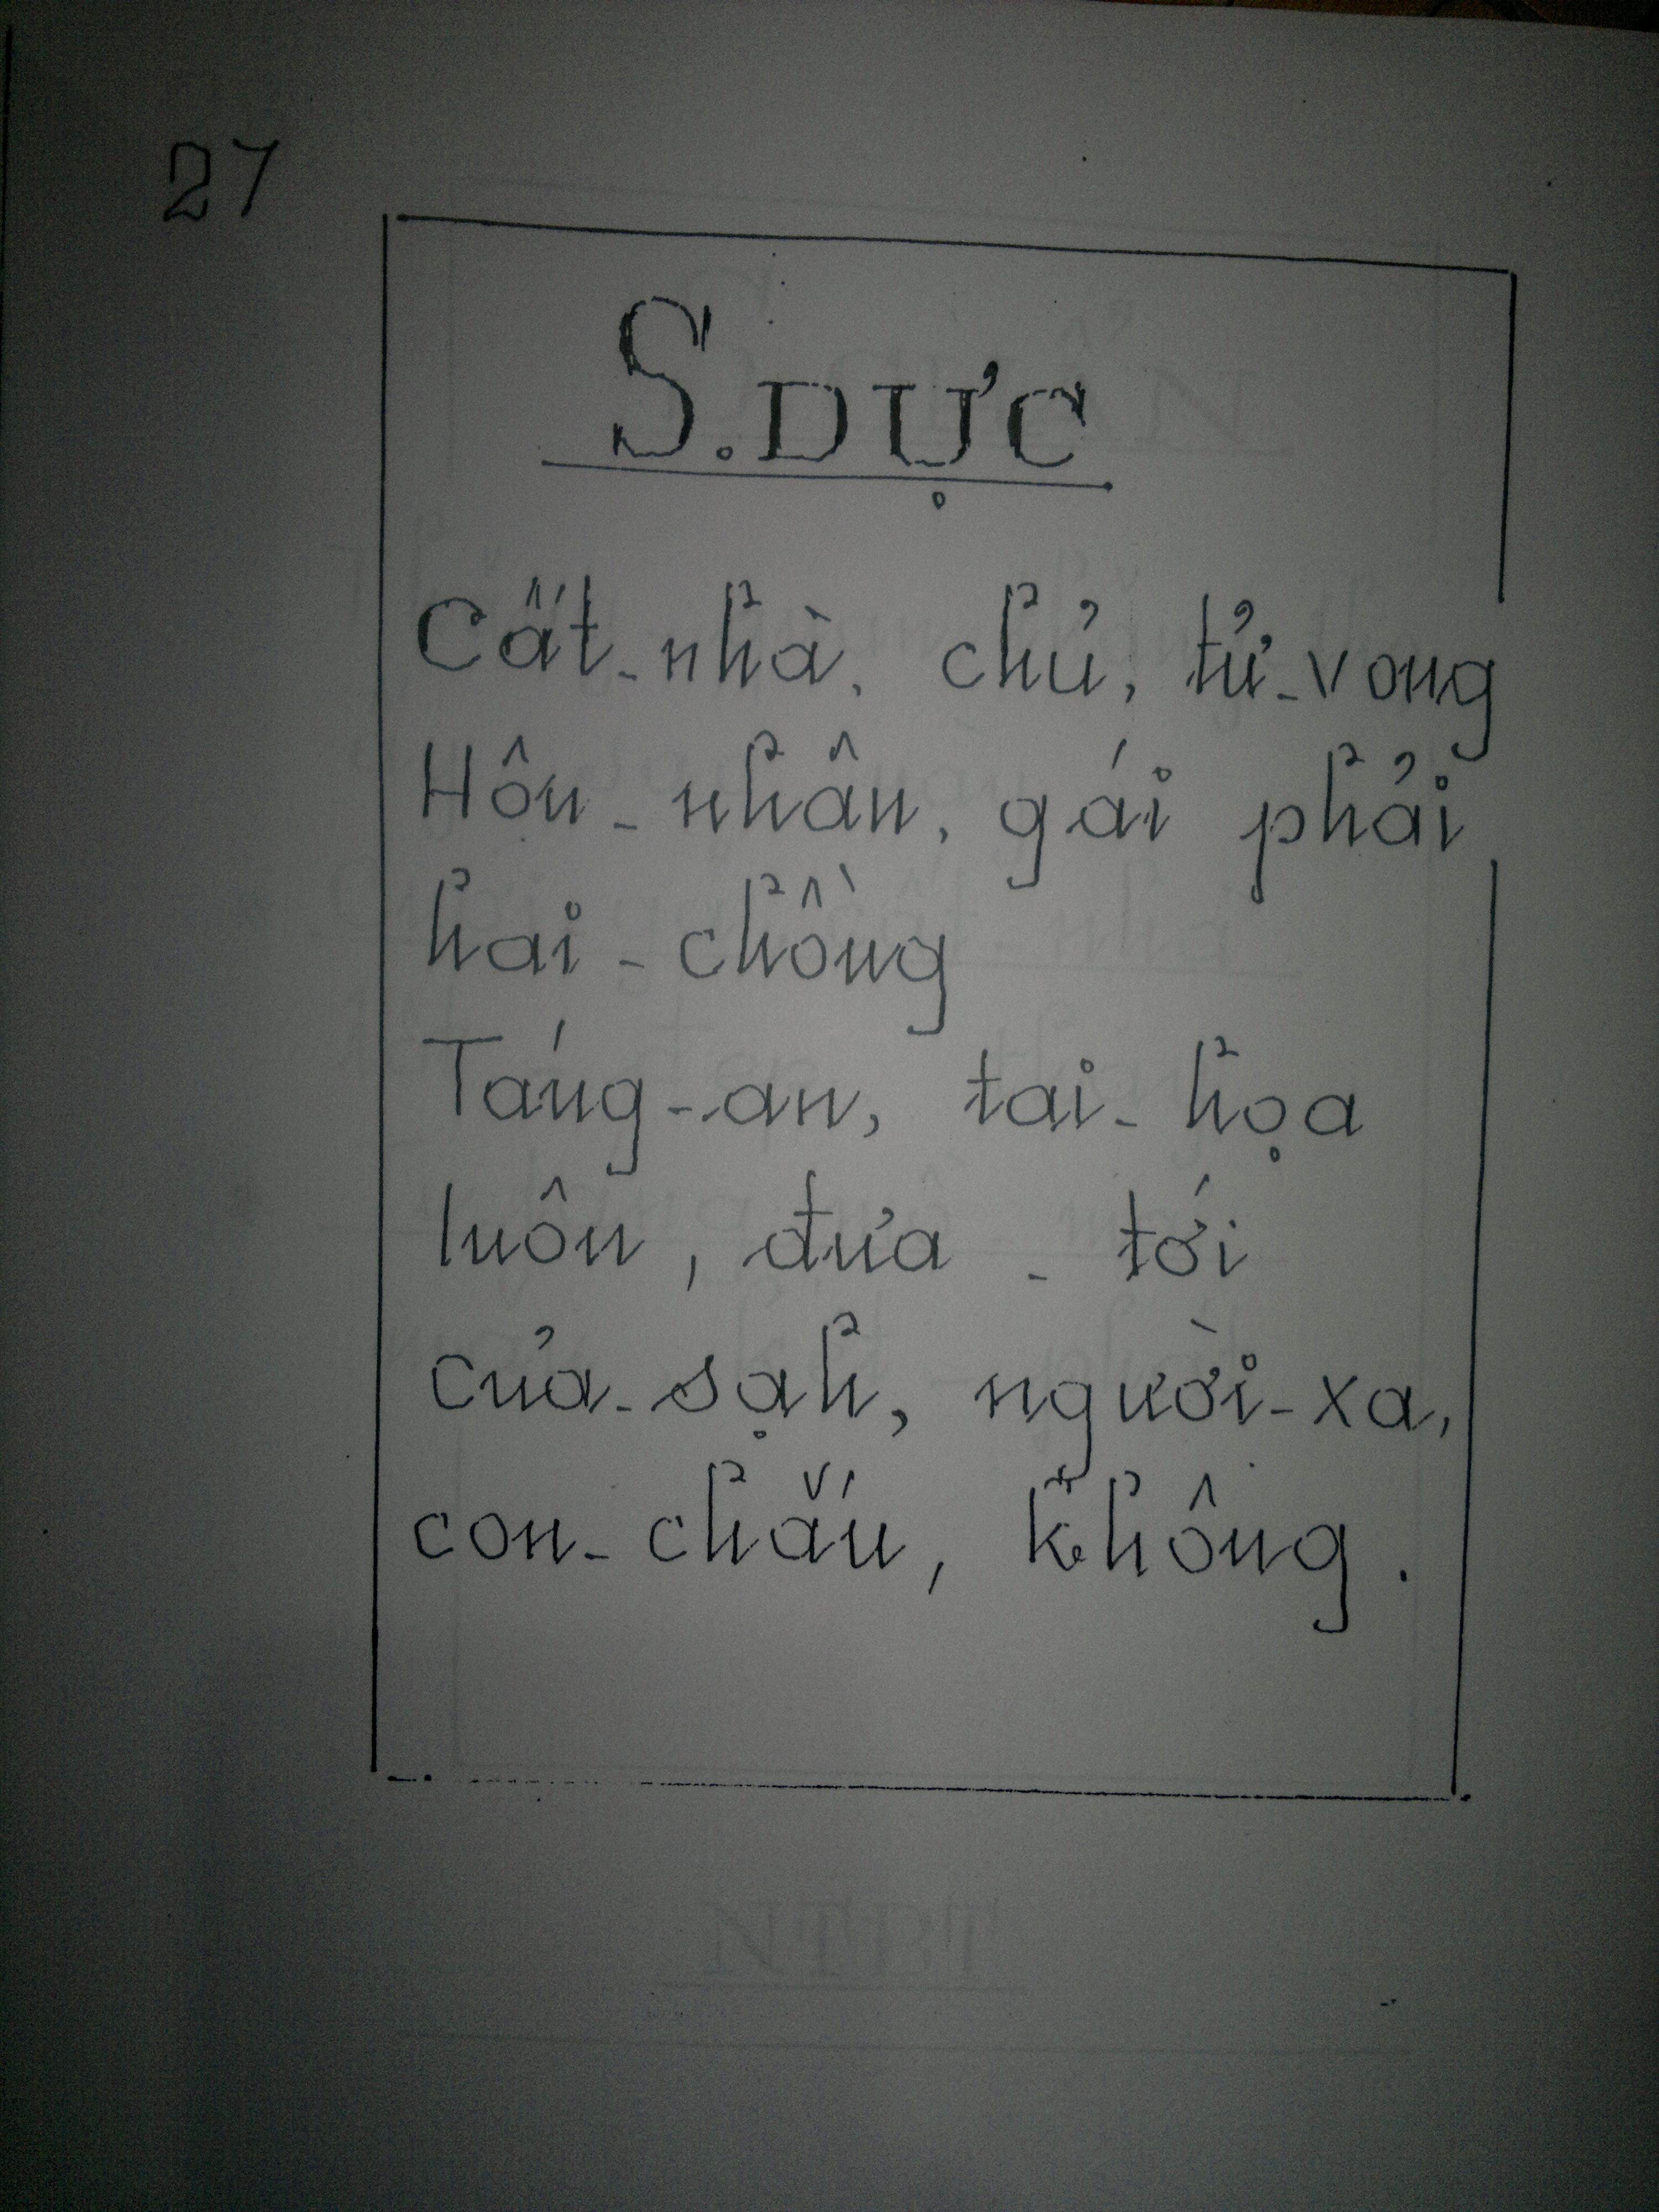 27
S. DỰC
Cất-nhà, chủ, tử-vong
Hôn-nhân, gái phải
hai-chồng
Táng-an, tai-họa
luôn, đưa-tới
Của-sạh, người-xa,
con-chắu, không.